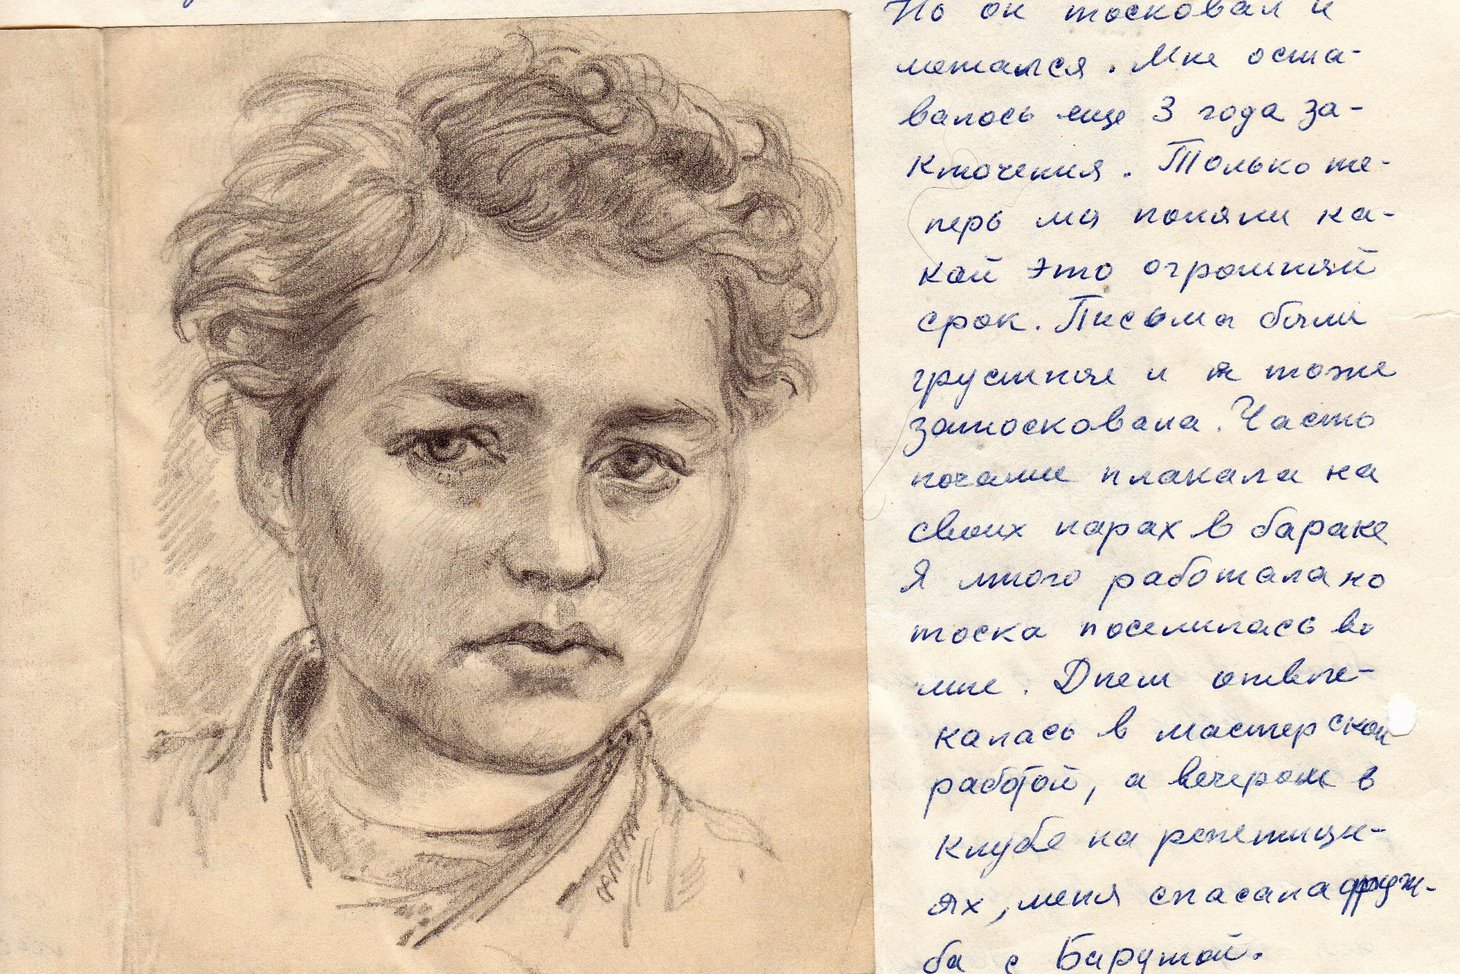 Но он тосковал и
метался. Мне оста-
валось еще 3 года за-
ключения. Только те-
перь мы поняли ка-
кой это огромный
срок. Письма были
грустные и я тоже
затосковала. Часто
ночами плакала на
своих нарах в бараке
Я много работала но
тоска поселилась во
мне. Днем отвле-
калась в мастерской
работой, а вечером в
клубе на репетици-
ях, меня спасала друж-
ба с Барутой.